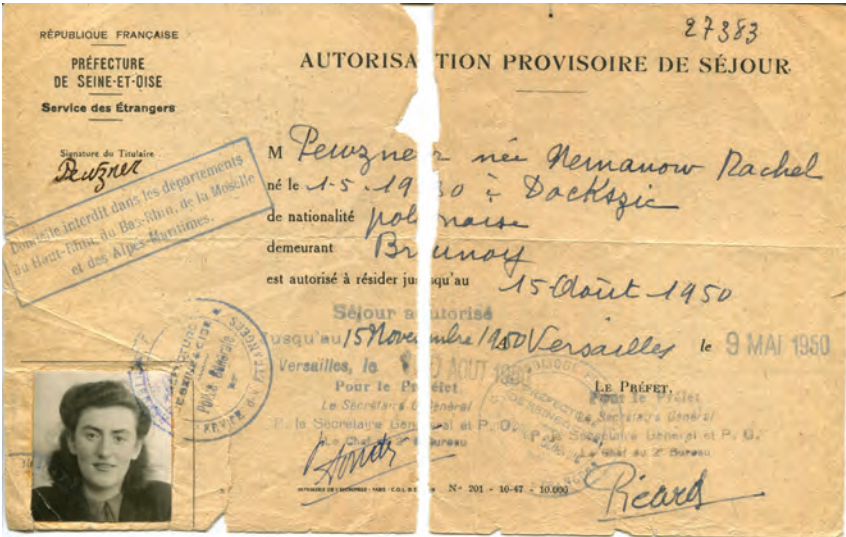 27383
RÉPUBLIQUE FRANÇAISE
PRÉFECTURE
DE SEINE-ET-OISE
Service des Étrangers
AUTORISATION PROVISOIRE DE SÉJOUR
Signature du Titulaire
Pewzner
Domicile interdit dans les départements
du Haut-Rhin, du Bas-Rhin, de la Moselle
et des Alpes-Maritimes.
M Pewzner née Nemanow Rachel
né le 1-5-1930 à Dockszic
de nationalité polonaise
demeurant Brunoy
est autorisé à résider jusqu'au 15 Août 1950
Séjour autorisé
Jusqu'au 15 Novembre 1950
A Versailles le 9 MAI 1950
Versailles, le AOUT
Pour le Préfet
Le Secrétaire Général
P. le Secrétaire Général et P. O.
Le Chef du 2e Bureau
LE PRÉFET,
Pour le Préfet
Le Secrétaire Général
P. le Secrétaire Général et P. O.
Le Chef du 2e Bureau
Picard
N° 201 - 10-47 - 10.000